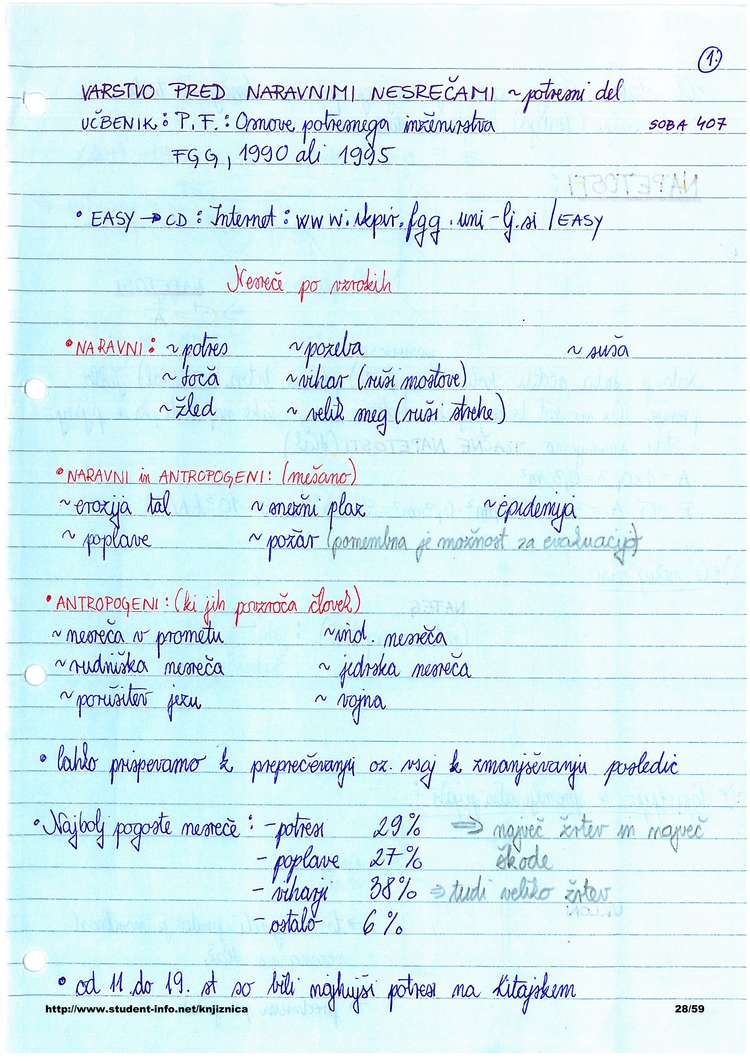 1.
VARSTVO PRED NARAVNIMI NESREČAMI ~ potresni del
UČBENIK: P.F.: Osnove potresnega inženirstva SOBA 407
FGG, 1990 ali 1995
• EASY → CD: Internet: www.ikpir.fgg.uni-lj.si/EASY
Nesreče po vzrokih
• NARAVNI: ~ potres ~ pozeba ~ suša
~ toča ~ vihar (ruši mostove)
~ žled ~ velik sneg (ruši strehe)
• NARAVNI in ANTROPOGENI: (mešano)
~ erozija tal ~ snežni plaz ~ epidemija
~ poplave ~ požar (pomembna je možnost za evakuacijo)
• ANTROPOGENI: (ki jih povzroča človek)
~ nesreča v prometu ~ ind. nesreča
~ rudniška nesreča ~ jedrska nesreča
~ porušitev jezu ~ vojna
• lahko prispevamo k preprečevanju oz. vsaj k zmanjševanju posledic
• Najbolj pogoste nesreče: - potresi 29% ⇒ največ žrtev in največ
- poplave 27% škode
- viharji 38% ⇒ tudi veliko žrtev
- ostalo 6%
• od 11. do 19. st so bili najhujši potresi na Kitajskem
http://www.student-info.net/knjiznica 28/59